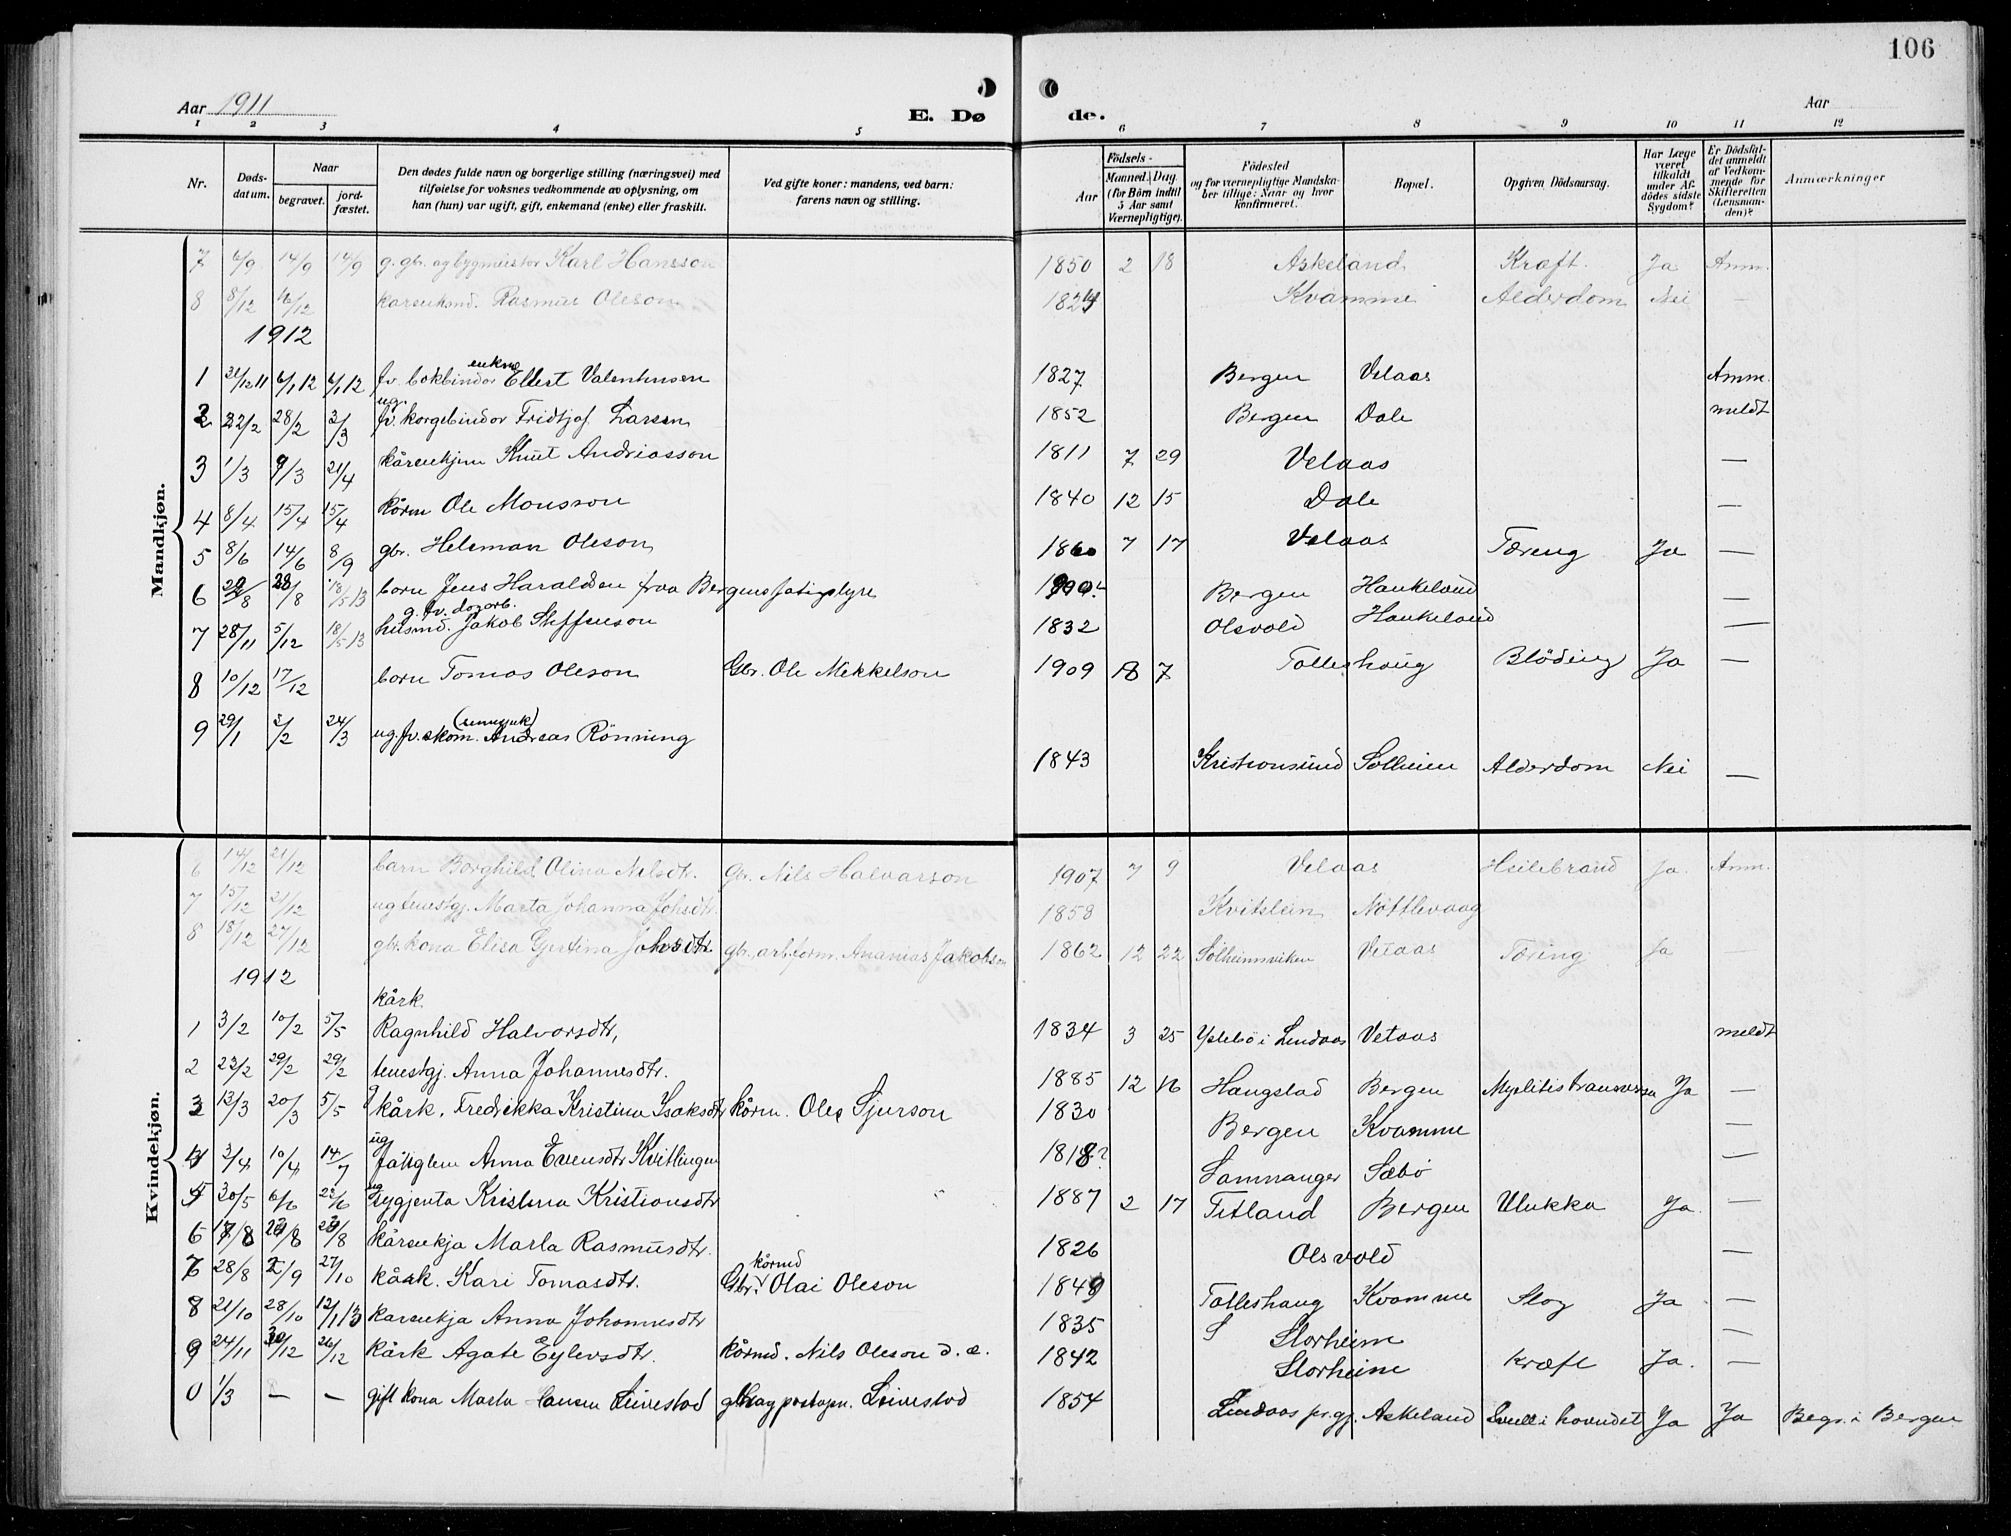 106
Aar 1911
E. Døde.
Aar
1 2 3 4 5 6 7 8 9 10 11 12
Nr.
Døds-datum.
Naar
begravet.
jord-fæstet.
Den dødes fulde navn og borgerlige stilling (næringsvei) med
tilføielse for voksnes vedkommende av oplysning, om
han (hun) var ugift, gift, enkemand (enke) eller fraskilt.
Ved gifte koner: mandens, ved barn:
farens navn og stilling.
Fødsels-
Aar
Maaned. Dag.
(for Börn indtil
5 Aar samt
Værnepligtige).
Födested
og for værnepligtige Mandska-
ber tillige: Naar og hvor
konfirmeret.
Bopæl.
Opgiven Dödsaarsag.
Har Læge
været
tilkaldt
under Af-
dödes sidste
Sygdom?
Er Dödsfal-
det anmeldt
af Vedkom-
mende for
Skifteretten
(Lensman-
den)?
Anmærkninger
Mandkjøn.
7 6/9 14/9 14/9 g. gbr. og bygmeister Karl Hansson 1850 2 18 Askeland Kræft. Ja Anm.
8 8/12 16/12 Rasmus Oleson Kvamme Alderdom Nei —
1912
1 31/12 11 6/1 12 6/1 12 fv. bokbinder enkm Ellert Valenhusen 1827 Bergen Velaas Anm.
2 22/2 28/2 2/3 ug. fv. korgebinder Fridtjof Larsen 1852 Bergen Dale meldt
3 1/3 9/3 21/4 kårenkjm Knut Andriasson 1811 7 29 Velaas —
4 8/4 15/4 15/4 kårm Ole Monsson 1840 12 15 Dale —
5 8/6 14/6 8/9 gbr. Heleman Oleson 1860 7 17 Velaas Tæring Ja —
6 28/8 born Jens Haraldsen fraa Bergens fatigstyre Bergen Haukeland —
7 28/11 5/12 18/5 13 husmd. g. fv. Jakob Steffenson 1832 Olsvold Haukeland —
8 10/12 17/12 born Tomas Oleson Gbr. Ole Mekkelson 1909 8 7 Tolleshaug Blöding Ja —
9 29/1 2/2 24/3 ug. fv. skom. Andreas Rönning 1843 Kristiansund Solheim Alderdom Nei —
Kvindekjøn.
6 14/12 21/12 barn Borghild Olina Nilsdtr. Gbr. Nils Halvarson 1907 7 9 Velaas Heilebrand Ja. Anm.
7 15/12 21/12 ug tenestgj. Marta Johanna Johsdtr. 1858 Kvitstein Nöttlevaag
8 18/12 27/12 gbr. kona Elisa Gjertina Johsdtr. gbr. arb.form. Ananias Jakobson 1862 12 22 Solheimsviken Velaas Tæring Ja —
1912
1 3/2 10/2 5/5 kårk. Ragnhild Halvorsdtr, 1834 3 25 Lindaas Vetaas meldt
2 22/2 29/2 29/2 tenestgj. Anna Johannesdtr. 1885 12 16 Haugstad Bergen Myelitis transversa Ja —
3 13/3 20/3 5/5 kårk. Fredrikka Kristina Isaksdtr kårm. Ole Sjurson 1830 Bergen Kvamme —
4 3/4 10/4 14/7 ug fatiglem Anna Evensdtr Kvitlingen 1818? Samnanger Sæbö —
5 30/5 6/6 22/6 ug sygjenta Kristina Kristiansdtr 1887 2 17 Titland Bergen Ulukka Ja. —
6 17/8 kårenkja Marta Rasmusdtr. 1826 Olsvold —
7 28/8 27/10 kårk. Kari Tomasdtr. Gbr. kårmd Olai Oleson 1849 Tolleshaug Kvamme Slag Ja —
8 21/10 28/10 12/1 13 karenkja Anna Johannesdtr 1835 Storheim —
9 24/11 26/12 kårk Agate Eylevsdtr. kårmd. Nils Oleson d. e. 1842 Storheim kræft Ja. —
0 1/3 — — gift kona Marta Hansen Leirestad Leirestad 1854 Lindaas pr.gj. Askeland Svull i hovudet Ja Ja Begr. i Bergen